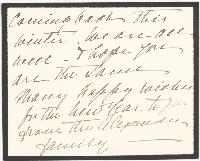 Coming back this
winter. We are all
well - I hope you
are the same
Many happy wishes
for the new Year to you
from the Alexander
family